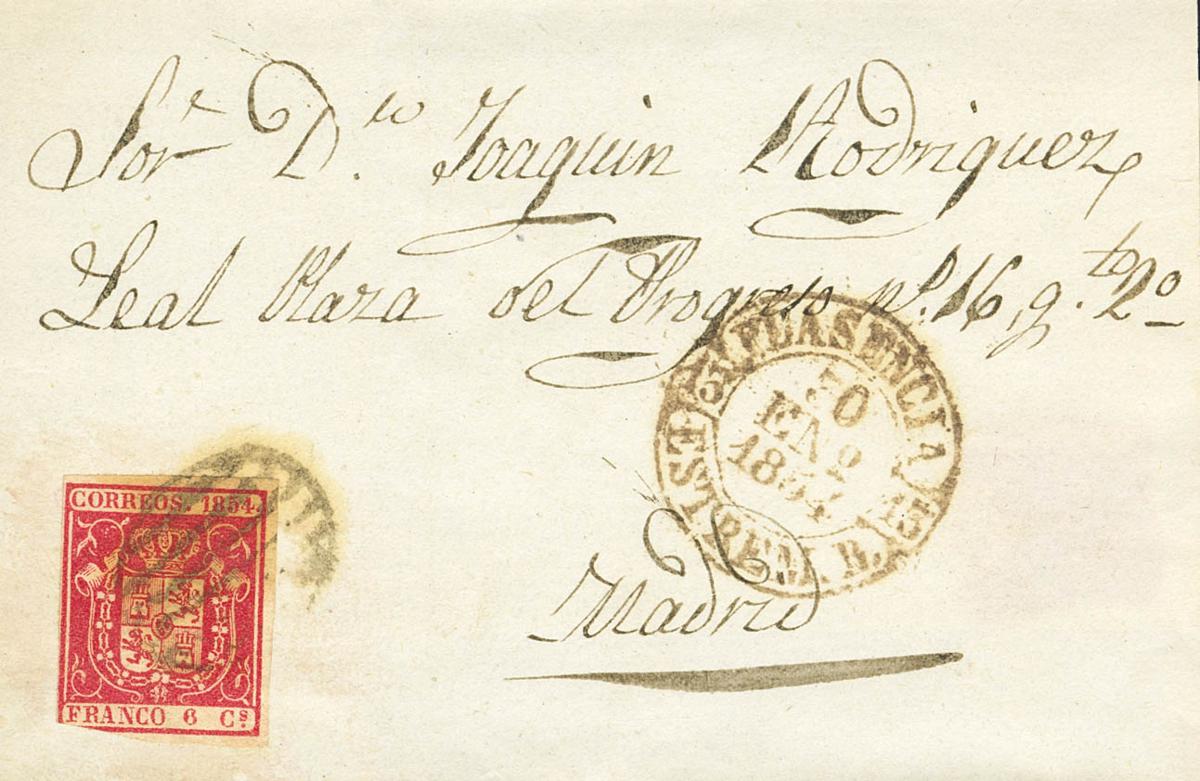 Sor. D.to Joaquin Rodriguez
Leal Plaza del Progreso no. 16, q.to 2º
PLASENCIA
30
ENE
1854
EST
REM. B.
CORREOS. 1854.
FRANCO 6 Cs.
Madrid